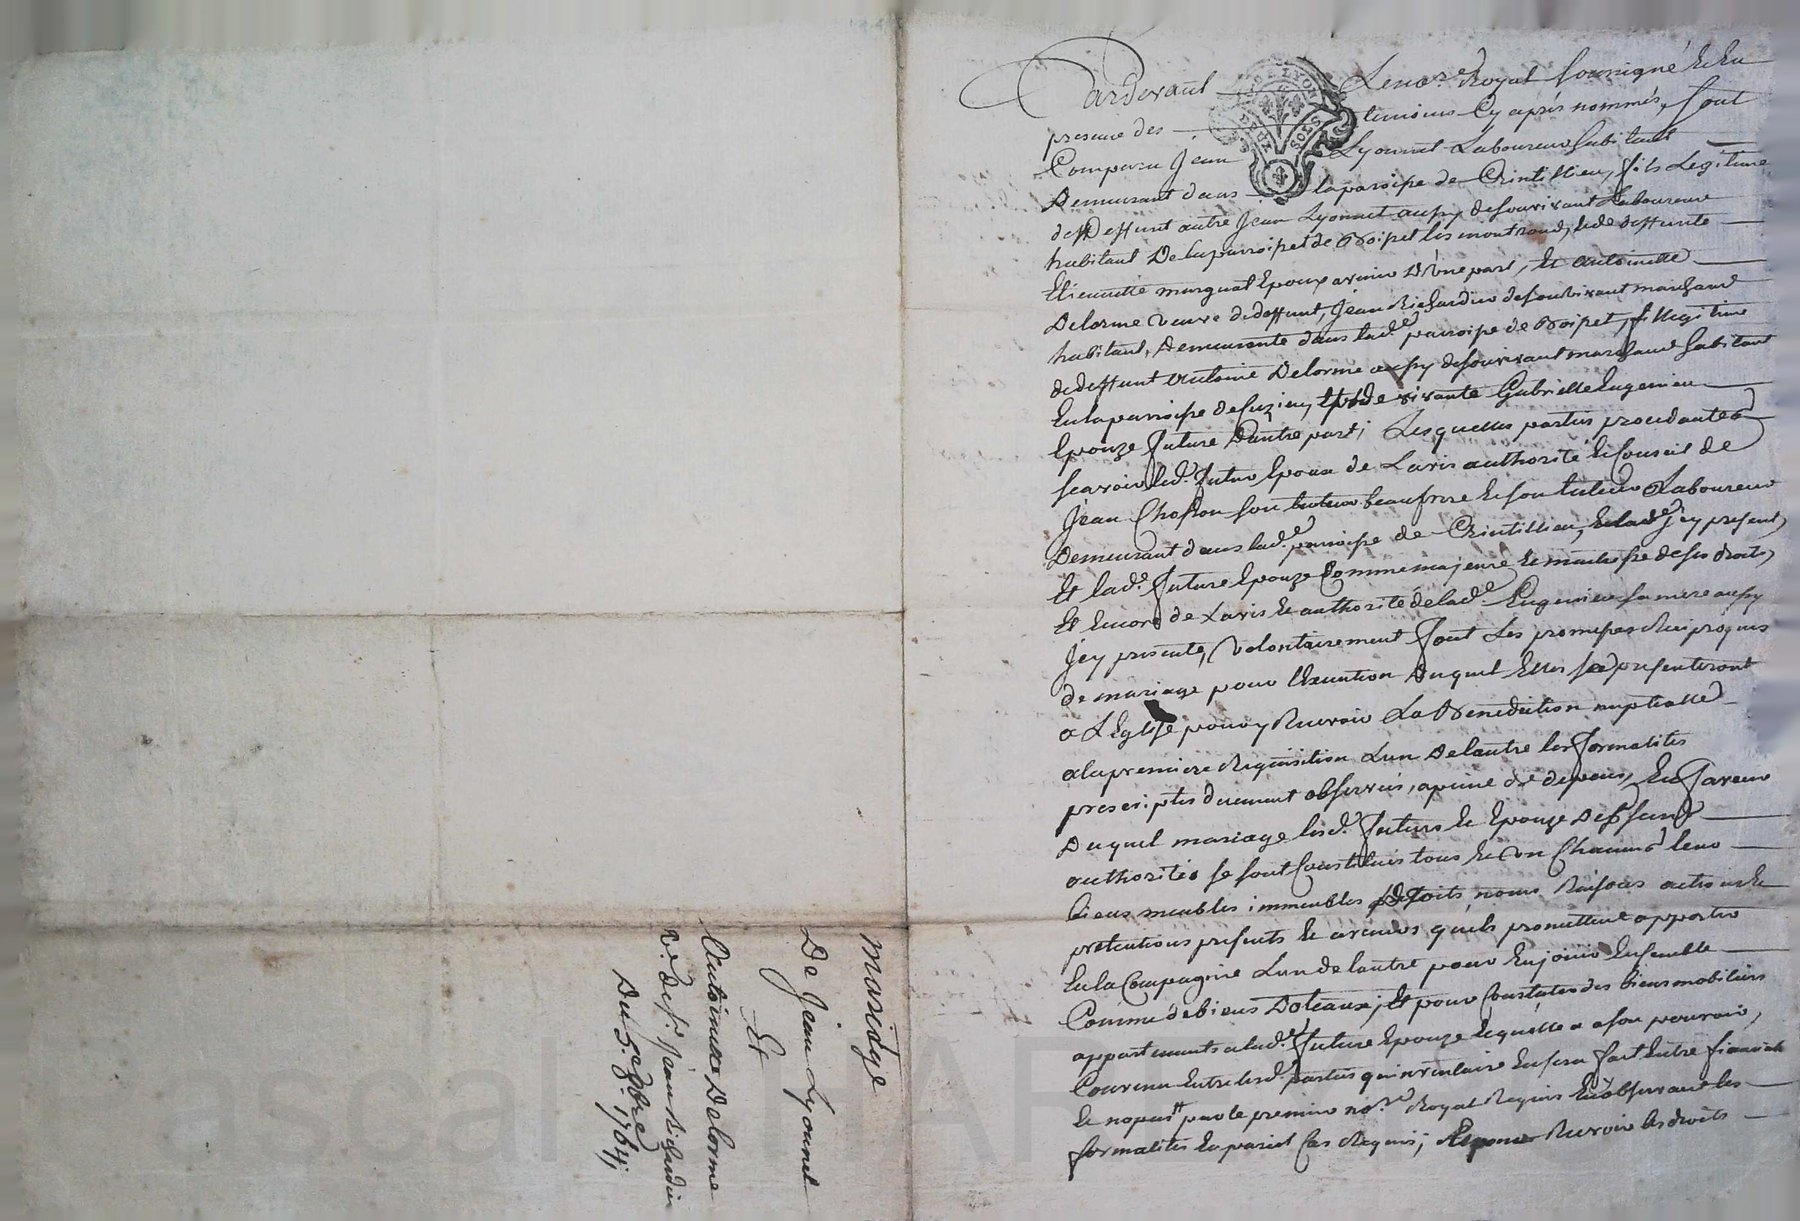 Pardevant Le no.re Royal soussigné et en
presence des temoins cy après nommés, sont
Comparu Jean Lyonnet Laboureur habitant
Demeurant dans la paroisse de Craintillieu, fils Legitime
de deffunt autre Jean Lyonnet aussy de son vivant Laboureur
habitant De la paroisse de Boisset les montrond, et de deffunte
Etiennette marguat Epoux avenir D'une part, Et Antoinette
Delorme veuve de deffunt, Jean Richardier de son vivant marchand
habitant, Demeurante dans lad.e parroisse de Boisset, fille legitime
de deffunt Antoine Delorme aussy de son vivant marchand habitant
En la parroisse de Cuzieu, Et de vivante Gabrielle Eugenieu
Epouze future D'autre part; Lesquelles parties procedantes
scavoir led. futur Epoux de L'avis authorité et Conseil de
Jean Chosson son beaufrere et son tuteur Laboureur
Demeurant dans lad.e parroisse de Craintillieu, jcy present,
Et lad.e future Epouze Comme majeure et maitresse de ses droits,
Et Encore de L'avis et authorité de lad.e Eugenieu sa mere aussy
Jcy presente, Volontairement font Les promesses Reciproques
de mariage pour l'Execution Duquel Elles se presenteront
a L'Eglise pour y Recevoir La Benediction nuptialle
a la premiere Requisition L'un De l'autre les formalités
prescriptes duement observées, a peine de depens, En faveur
Duquel mariage lesd. futurs Epouze
authorités se sont Constitués tous et un Chacuns leur
biens meubles immeubles Droits noms Raisons actions et
pretentions presents et avenirs qu'ils promettent apporter
En la Compagnie L'un de l'autre pour En jouir Ensemble
Comme de biens Doteaux; Et pour Constater des biens mobiliers
appartenants a lad.e future Epouze lequelle a a son pouvoir,
Convenu Entre lesd. parties qu'inventaire En sera fait Entre
par le premier no.re Royal Requis En observant les
formalités En pareil Cas Requis; Recevoir les droits
mariage
De Jean Lyonnet
Et
Antoinette Delorme
V.e De Jean Richardier
Du 5.e 1764.